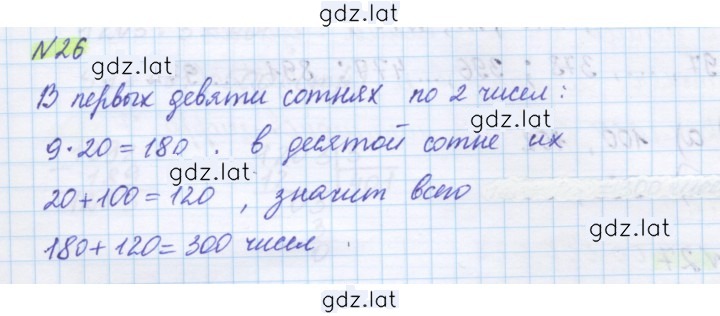 gdz.lat
N26
gdz.lat
В первых девяти сотнях по 2 чисел:
gdz.lat
9·20=180. в десятой сотне их
gdz.lat
20+100=120, значит всего
gdz.lat
180+120=300 чисел.
gdz.lat